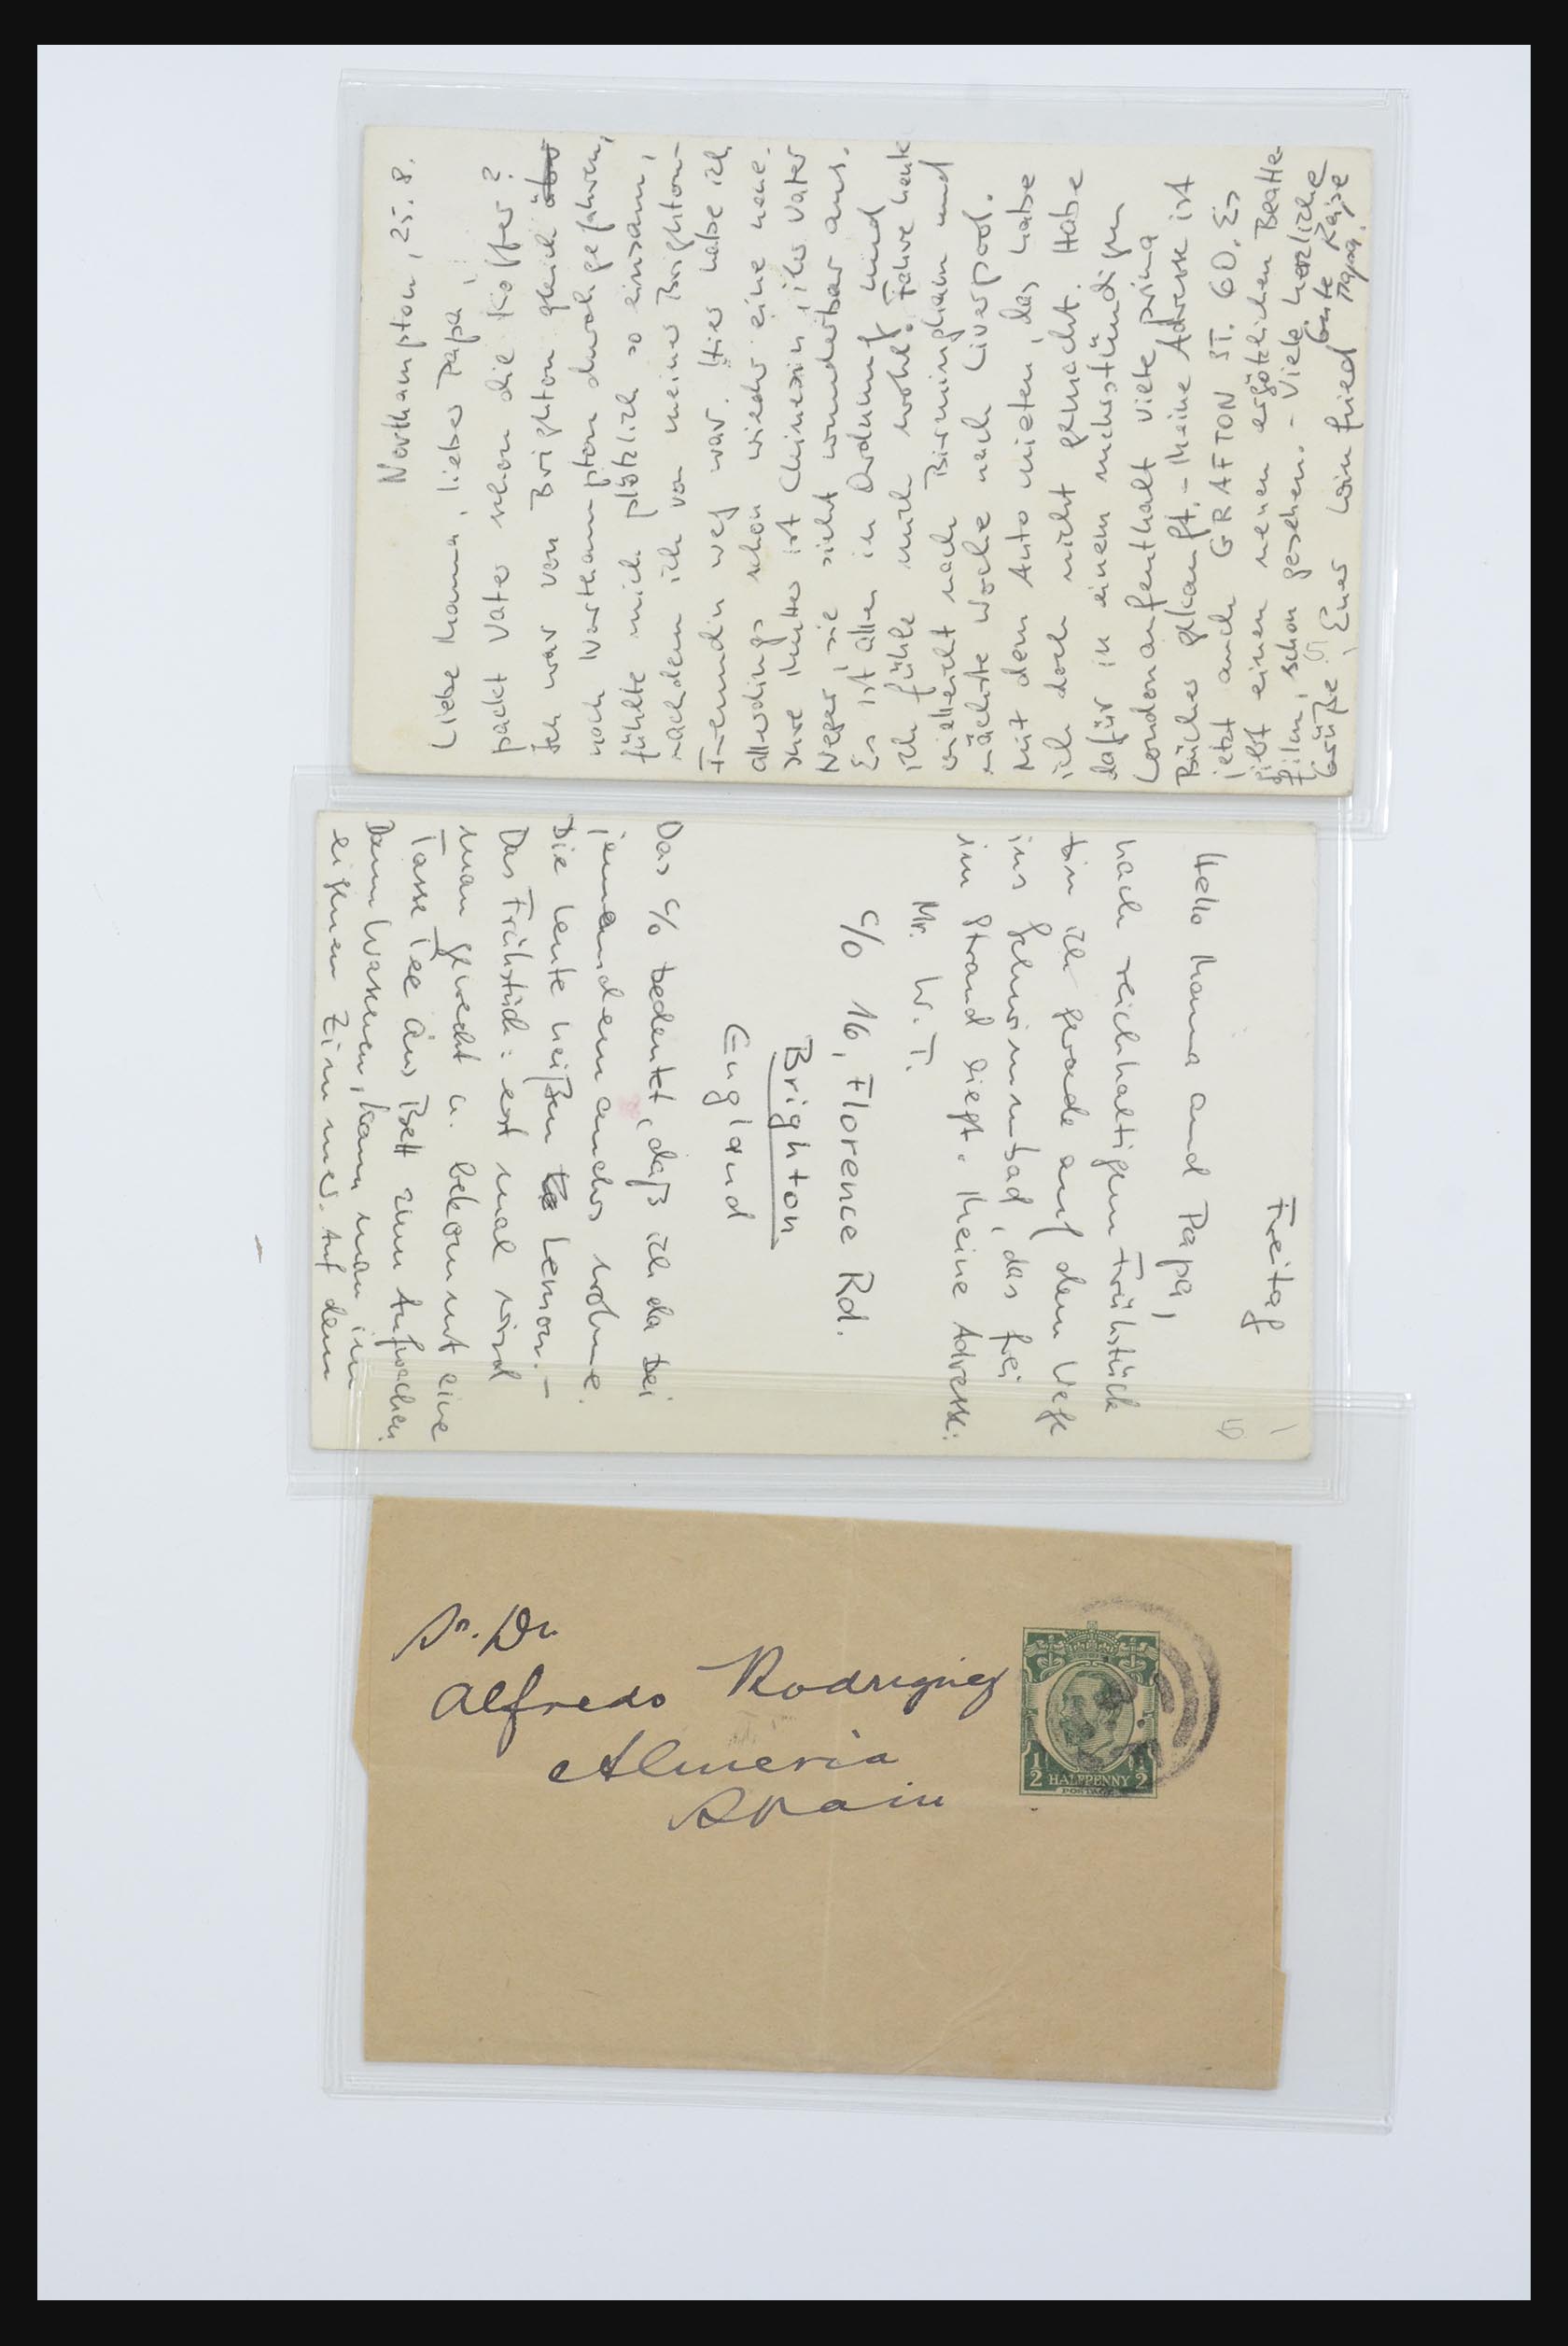 Northampton, 25.8.
Liebe Mama, lieber Papa!
packt Vater schon die Koffer?
Ich war von Brighton gleich
nach Northampton durchgefahren,
fühlte mich plötzlich so einsam,
nachdem ich von meiner Brighton-
Freundin weg war. Hier habe ich
allerdings schon wieder eine neue.
Ihre Mutter ist Chinesin, ihr Vater
Neger, sie sieht wunderbar aus.
Es ist alles in Ordnung und
ich fühle mich wohl. Fahre heute
vielleicht nach Birmingham und
nächste Woche nach Liverpool.
Mit dem Auto mieten, das habe
ich doch nicht gemacht. Habe
dafür in einem mehrstündigen
Londonaufenthalt viele prima
Bücher gekauft. - Meine Adresse ist
jetzt auch GRAFTON ST. 60. Es
gibt einen neuen ergötzlichen Beatle-
film, schon gesehen. - Viele herzliche
Grüße, Euer Winfried
Gute Reise
Papa.
Freitag
Hello Mama and Papa,
nach reichhaltigem Frühstück
bin ich gerade auf dem Wege
ins Schwimmbad, das frei
im Strand liegt. Meine Adresse:
Mr. W. T.
c/o 16, Florence Rd.
Brighton
England
Das c/o bedeutet, daß ich da bei
jemandem anders wohne.
Die Leute heißen Lemon. -
Das Frühstück: erst mal wird
man geweckt u. bekommt eine
Tasse Tee ans Bett zum Aufwachen.
Dann Waschen, kann man im
eigenen Zimmer. Auf dem
Sr. Dr.
Alfredo Rodriguez
Almeria
Spain
1/2 HALFPENNY 1/2
POSTAGE